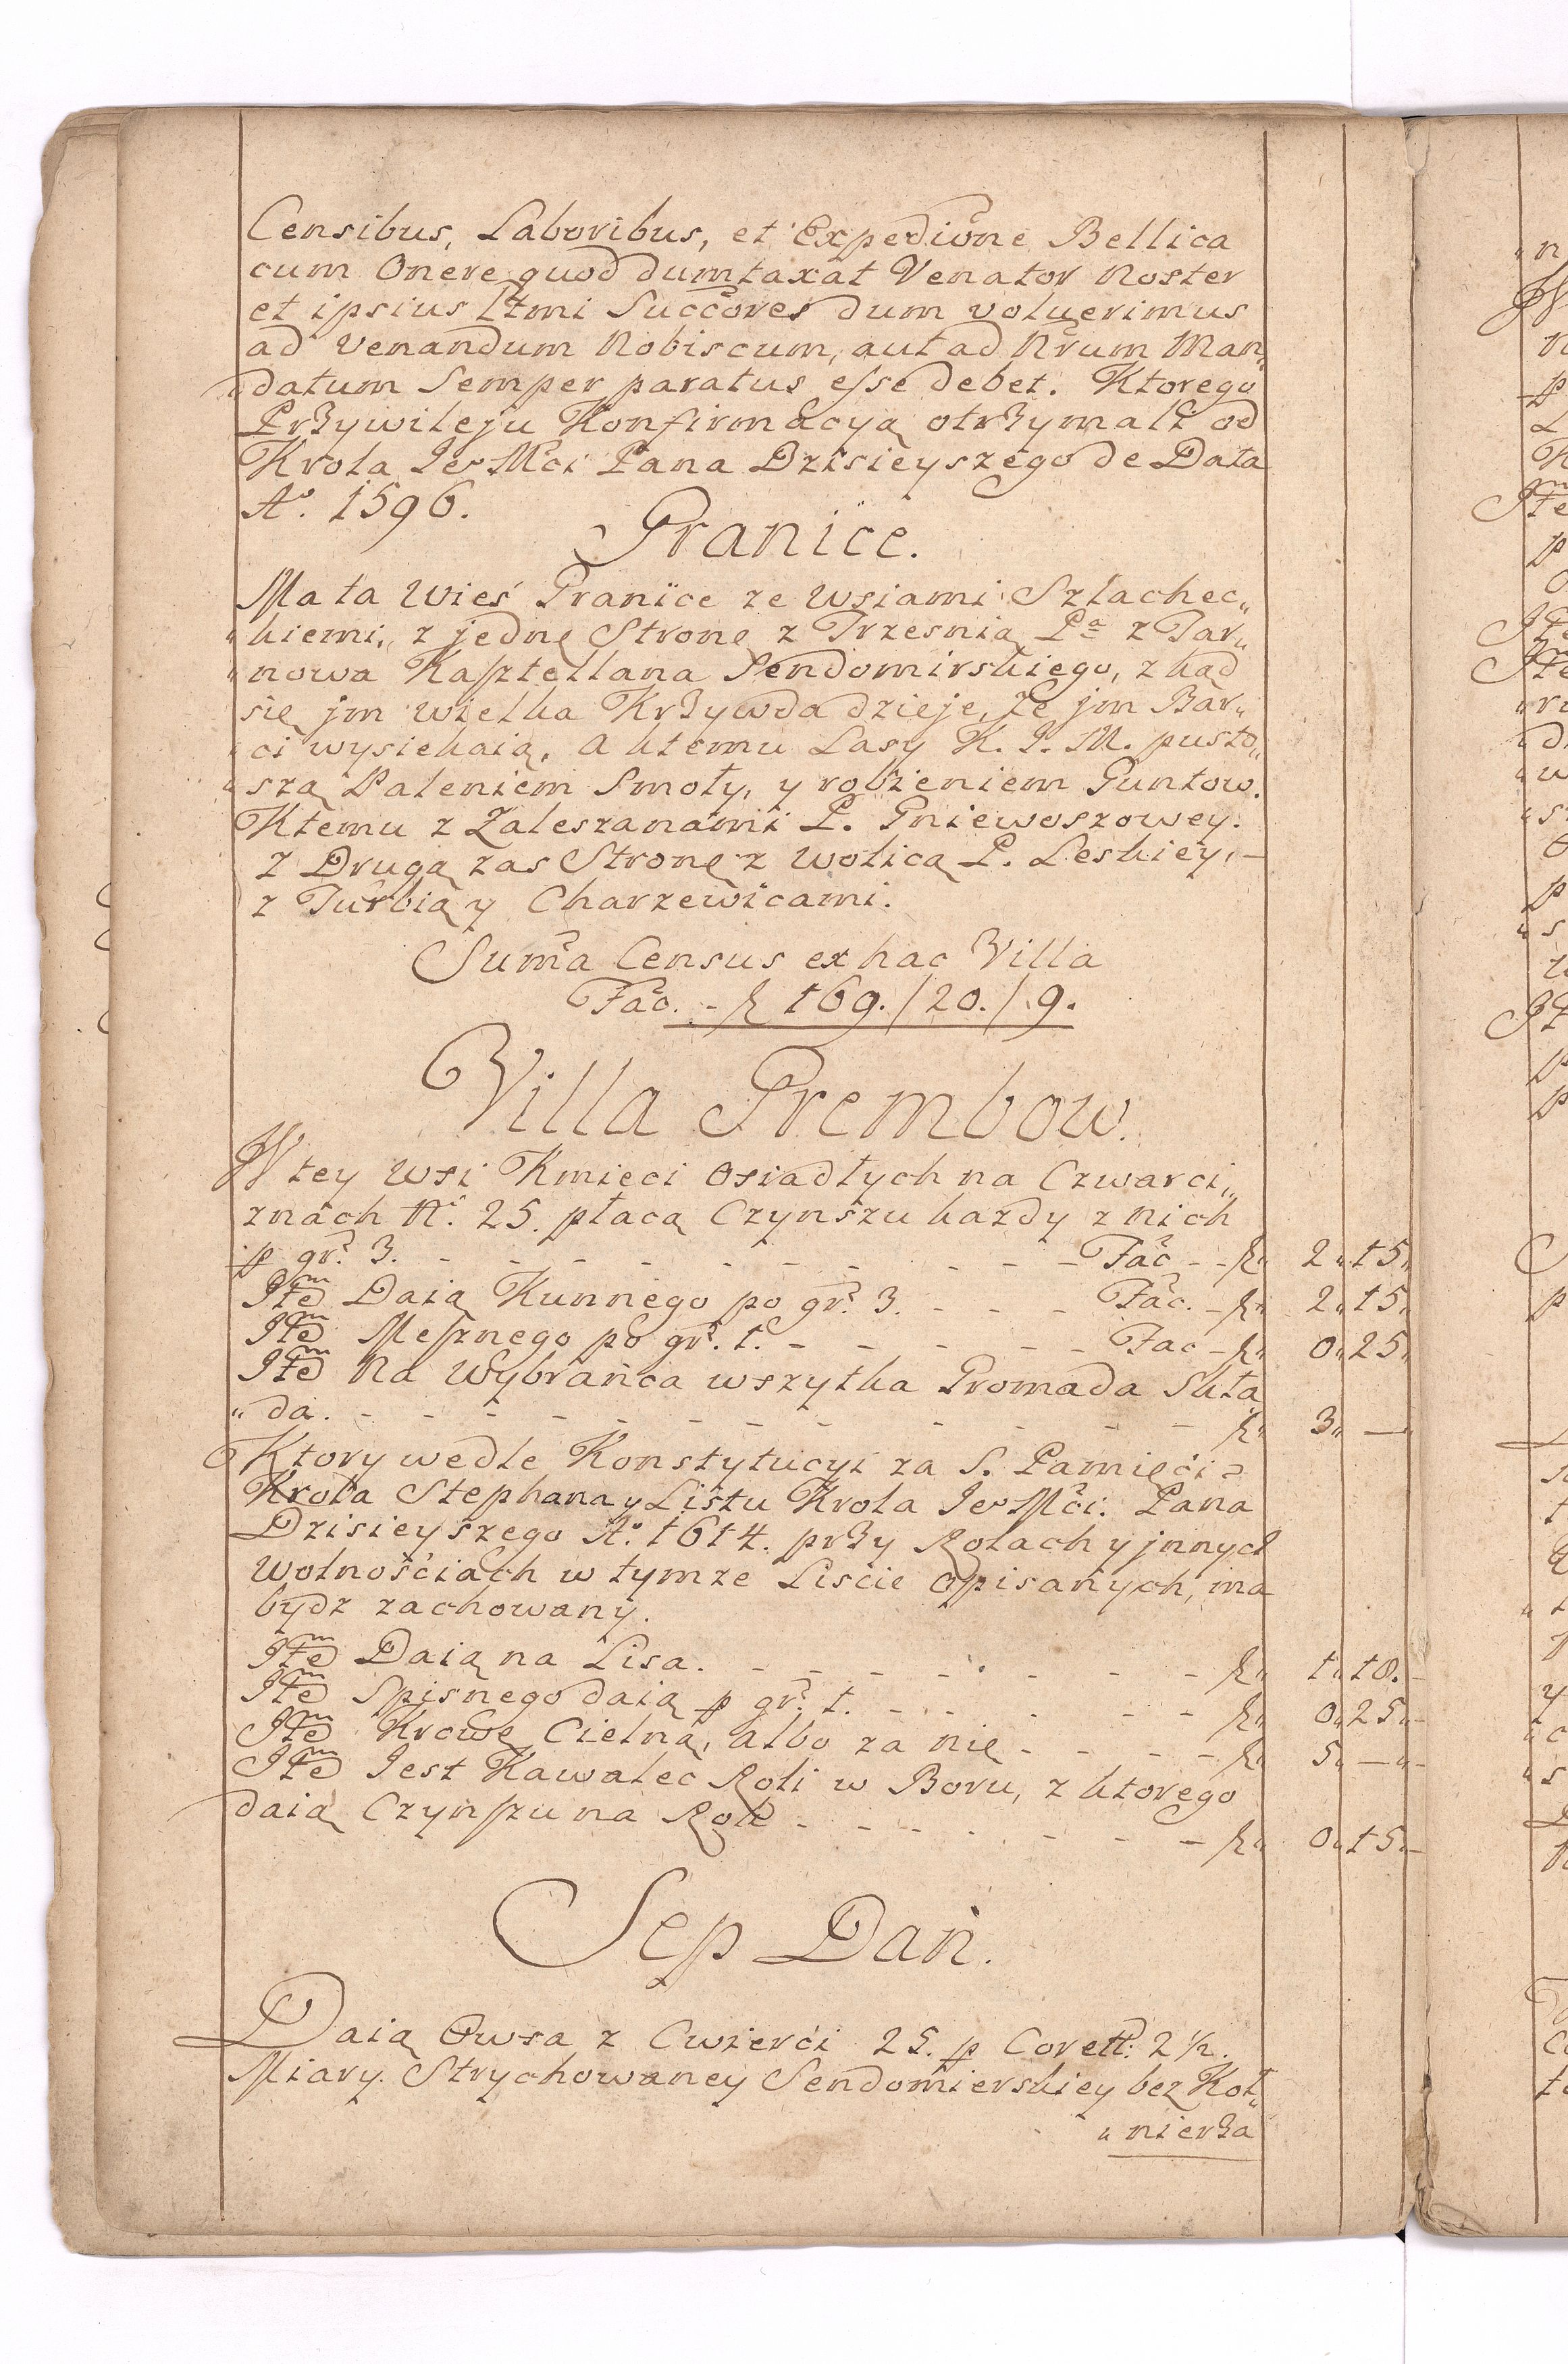 Censibus, Laboribus, et Expediõne Bellica
cum Onere quod dumtaxat Venator Noster
et ipsius Ltmi Succõres dum voluerimus
ad Venandum Nobiscum, aut ad Nrum Man„
datum Semper paratus esse debet. Ktorego
Przywileju Konfirmacyą otrzymali od
Krola Je° Mci Pana Dzisieyszego de Data
A°. 1596.
Granice.
Ma ta Wieś Granice ze Wsiami Szlachec„
„kiemi, z jednę Stronę z Trzesnią Pa z Tar„
„nowa Kasztellana Sendomirskiego, zkąd
się jm wielka Krzywda dzieje, że jm Bar„
„ci wysiekaią, a ktemu Lasy K. J. M. pusto„
„szą Paleniem Smoły, y robieniem Guntow.
Ktemu z Zaleszanami P. Gniewoszowey.
z Drugą zas Stronę z Wolicą P. Leskiey, –
z Turbią y Charzewicami.
Suma Census ex hac Villa
Fac. – fl 169. / 20. / 9.
Villa Grembow.
W tey Wsi Kmieci Osiadłych na Czwarci„
znach N°. 25. płacą Czynszu kazdy z nich
p gr. 3. – – – – – – – – – – Fac – – fl„ 2„ 15„
Itẽ Daią Kunnego po gr. 3. – – – Fac. – fl„ 2„ 15„
Itẽ Mesznego po gr. 1. – – – – – Fac – fl„ 0„ 25„
Itẽ Na Wybrańca wszytka Gromada Skła
„da. – – – – – – – – – – – – fl„ 3„ —
Ktory wedle Konstytucyi za S. Pamięci
Krola Stephana y Listu Krola Je° Mci. Pana
Dzisieyszego A°. 1614. przy Rolach y jnnych
Wolnościach w tymze Liscie opisanych, ma
bydz zachowany.
Itẽ Daią na Lisa. – – – – – – – – fl„ 1„ 18. –
Itẽ Spisnego daią p gr. 1. – – – – – – fl„ 0„ 25„ –
Itẽ Krowę Cielną, albo za nię – – – – fl„ 5„ —„ –
Itẽ Jest Kawalec Roli w Boru, z ktorego
daią Czynszu na Rok – – – – – – – – fl„ 0„ 15„ –
Sep Dań.
Daią Owsa z Cwierći 25. p Corett: 2 1/2.
Miary Strychowaney Sendomierskiey bez Koł„
„nierza